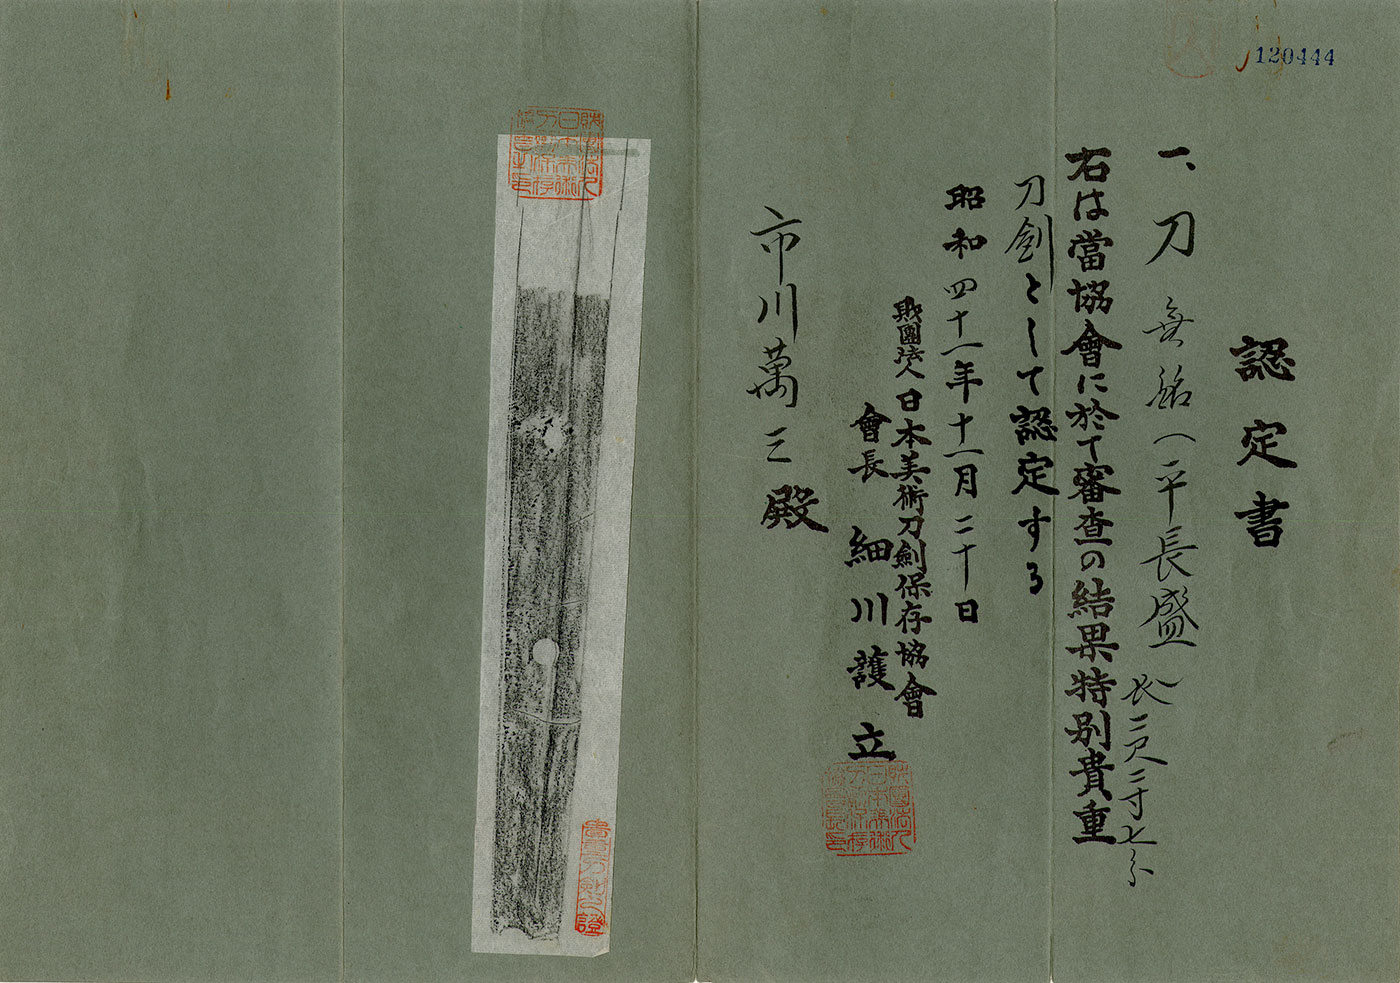 120444
認定書
一、刀 無銘(平長盛) 長二尺二寸七分
右は當協會に於て審査の結果特別貴重
刀劍として認定する
昭和四十一年十一月二十日
財團法人日本美術刀劍保存協會
會長 細川護立
市川萬三殿